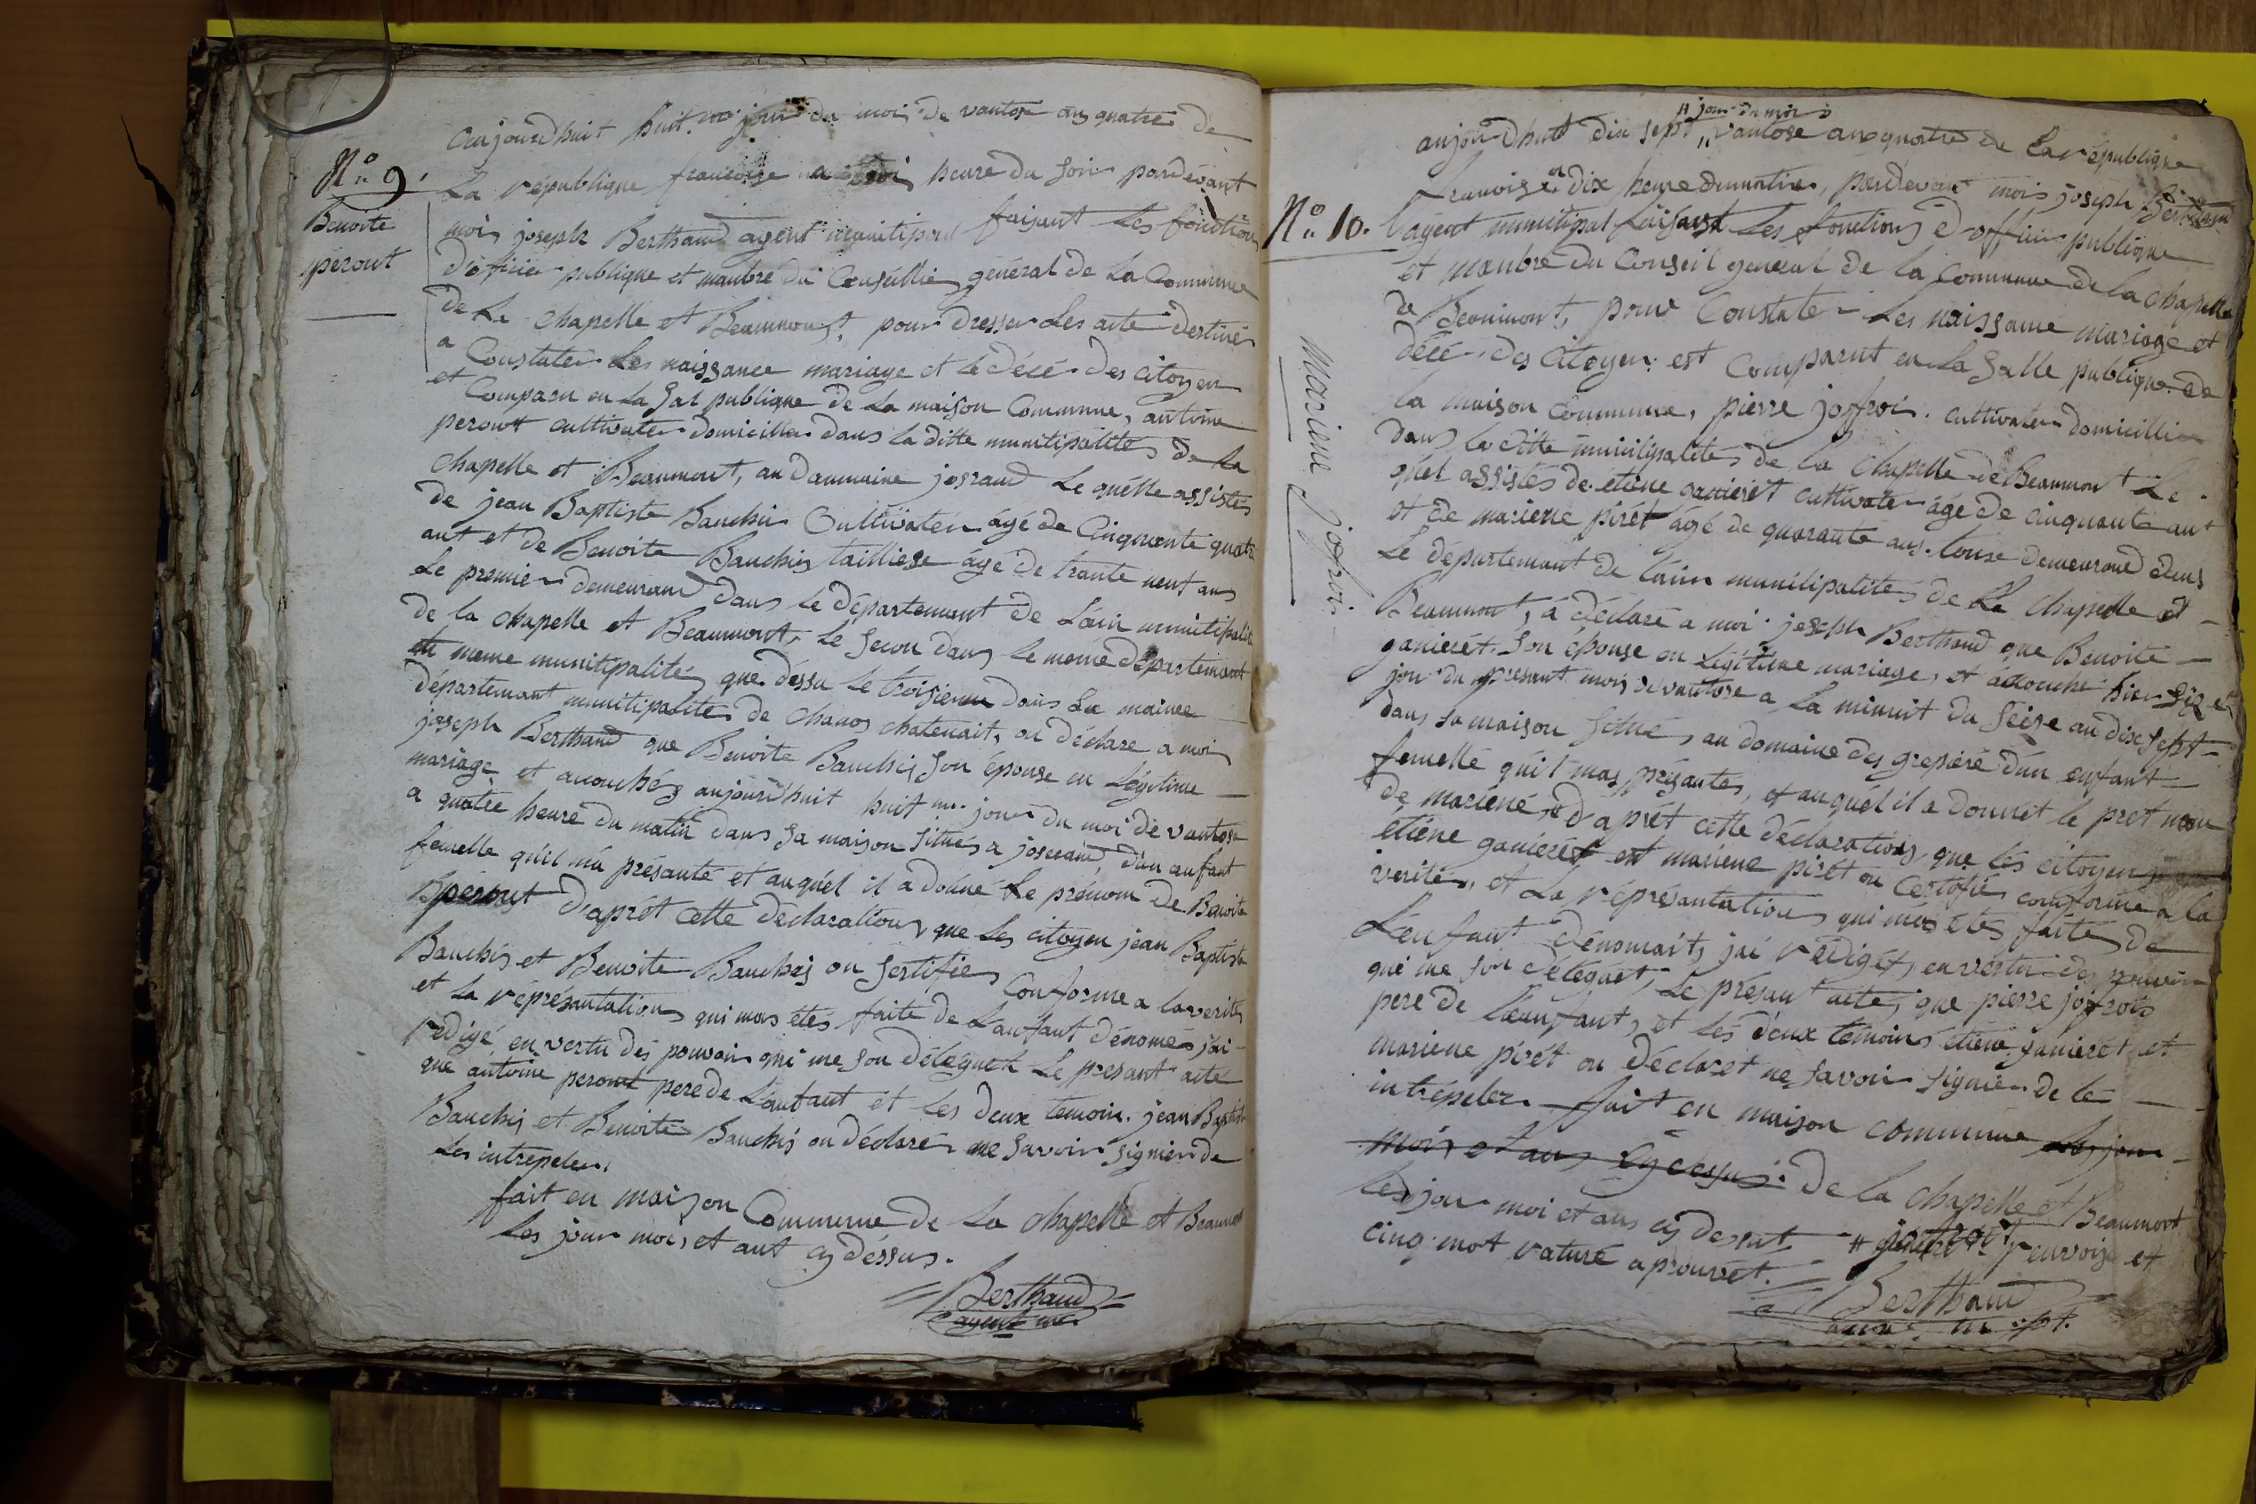 N.o 9.
Benoite
perout
aujourdhuit huit.me jour du moi de vantose ans quatre de
La république francoise a troi heure du soir pardevant
moi joseph Berthaud agent municipal faisant Les fonction
d'oficier publique et manbre du Conseillie général de La Commune
de La Chapelle et Beaumont, pour dresser Les acte destiné
a Constater Les naissance mariage et le décé des citoyen
et Comparu en La Sal publique de La maison Commune, antoine
perout cultivater domicillier dans la ditte municipalités de La
Chapelle et Beaumont, au Doumaine josraud Le quélle assistés
de jean Baptiste Bauchis Cultivatér âgé de Cinquante quatre
ant et de Benoite Bauchis tailliese âgé de trante neuf ans
Le premier demeurand dans Le département de L'ain municipalité
de la Chapelle et Beaumont, Le Secon dans Le même département
et meme municipalités que déssu Le troisieme dans Le maime
département municipalités de Chanos chatenait, on déclare a moi
joseph Berthaud que Benoite Bauchis Son épouse en Légitime
mariage et acouchéz aujourd'huit huit.me jour du moi de vantose
a quatre heure du matin dans Sa maison Situés a josraud d'un anfant
femelle qu'il m'a présanté et auquél il a donné Le prénom de Benoite
perout D'aprêt cette déclarations que Les citoyen jean Baptiste
Bauchis et Benoite Bauchis on Sertifiés Conforme a la verités
et La réprésantations qui mas étés faite de L'anfant dénomés j'ai
rédigé en vertu dés pouvoir qui me son délégueh Le présant acte
que antoine perout pere de L'anfant et Les deux temoin. jean Baptiste
Bauchis et Benoite Bauchis on déclarés ne Savoir signier de
Les intrepeler.
fait en maison Commune de La Chapelle et Beaumont
Les jour mois et ant cy déssus.
Berthaud
agent m.
N.o 10.
Mariene jofroi.
jour du moi
aujourdhuit dix sept vantose ans quatre de La république
francoise a dix heure du matin, pardevant mois joseph Berthaud
L'agent municipal faisant Les fonctions d'officier publique
et manbre du Conseil general de La Commune de la Chapelle
de Beaumont, pour Constater Les naissance mariage et
décé des citoyen est Comparut en La Salle publique de
la maison Commune, pierre joffroi cultivater domicillier
dans la ditte municipalités de la Chapelle de Beaumont Le
quel assistés de étiene ganierét cultivater âgé de cinquante ant
et de mariene pirét âgé de quarante ans. touse demeurand dans
Le département de L'ain municipalités de La Chapelle et
Beaumont, a déclaré a moi joseph Berthaud que Benoite
ganierét Son épouse en Légitime mariage, et acouché hier
jour du présant mois de vantose a La minuit du Séise au dix Sept
dans Sa maison Situé, au domaine des grepiéré d'un enfant
femelle qu'il mas présantés, et auquél il a donnét le prét nom
de mariené, D'aprêt cette déclarations que Les citoyen
étiene ganierét et mariene pirét on Certifiés conforme a La
vérités, et La réprésantations qui mas étés faités de
L'enfant dénomait, jai rédigét, en vértu dés pouvoir
qui me son déléguét, Le présant acte, que pierre jofrois
pere de L'anfant, et Les deux témoins étiene ganierét et
mariene pirét on déclarét ne Savoir Signier de Le
intrépeler. fait en maison commune Les jour
mois et ans cy dessus. De La Chapelle et Beaumont
Les jour moi et ans cy dessut jofroi renvoix et
cinq mot raturé aprouvét.
Berthaud
agent m.pt.